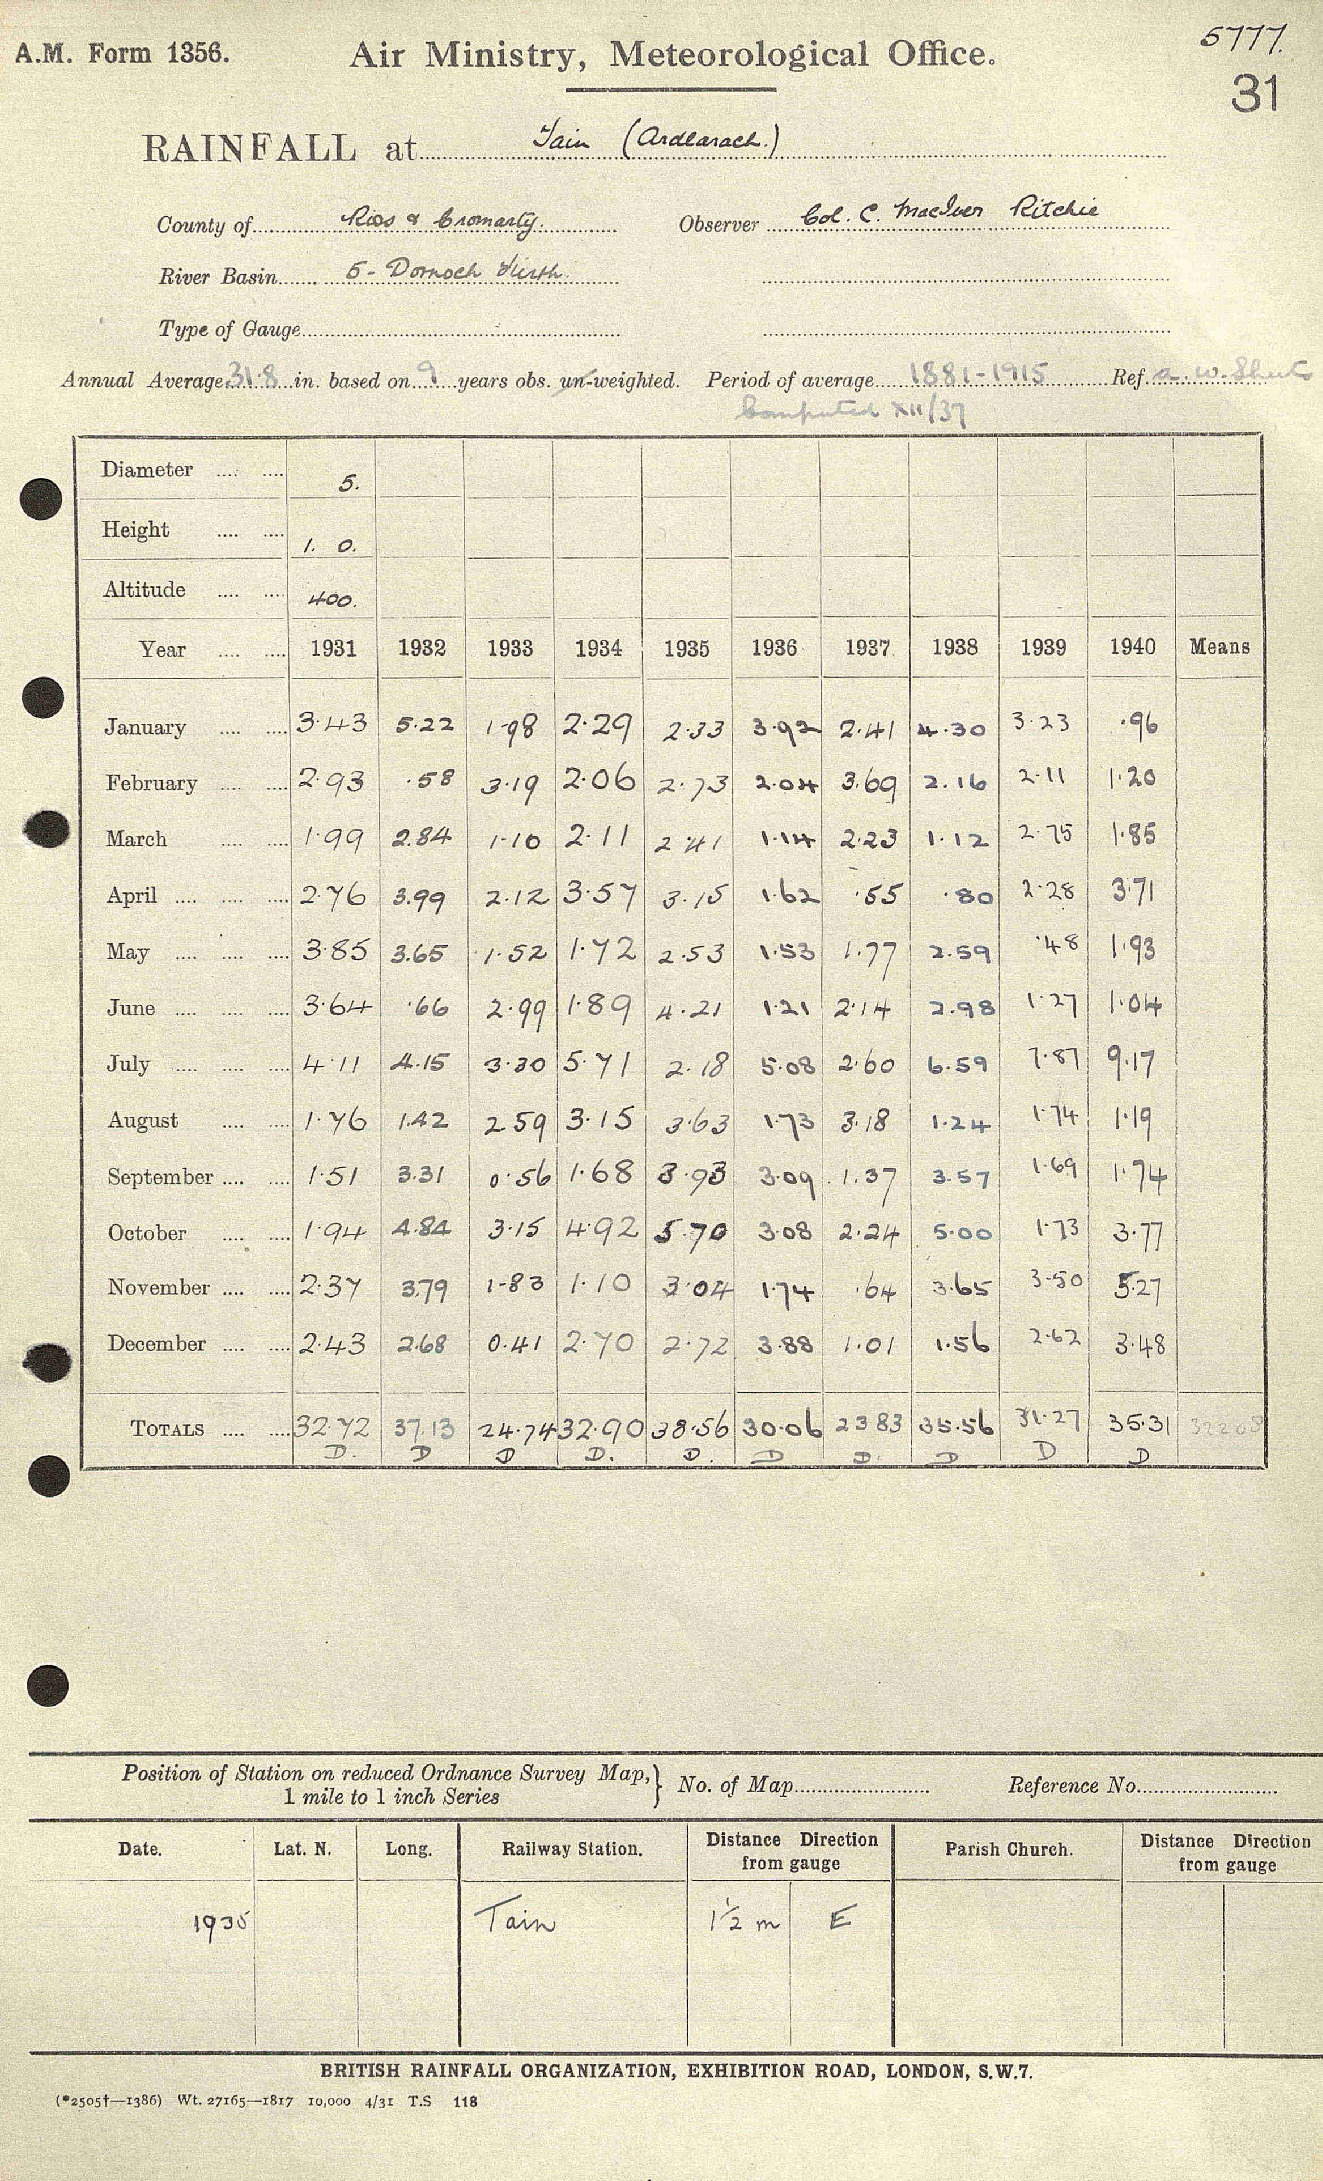 5777.
A.M. Form 1356. Air Ministry, Meteorological Office.
31
RAINFALL at Tain (Ardlarach.)
County of Ross & Cromarty. Observer Col. C. MacIver Ritchie
River Basin 5 - Dornoch Firth.
Type of Gauge
Annual Average 31.8 in. based on 9 years obs. un-weighted. Period of average 1881-1915 Ref. a. w. Sheets
Computed XII/37
Diameter 5.
Height 1. 0.
Altitude 400.
Year 1931 1932 1933 1934 1935 1936 1937 1938 1939 1940 Means
January 3.43 5.22 1.98 2.29 2.33 3.92 2.41 4.30 3.23 .96
February 2.93 .58 3.19 2.06 2.73 2.04 3.69 2.16 2.11 1.20
March 1.99 2.84 1.10 2.11 2.41 1.14 2.23 1.12 2.75 1.85
April 2.76 3.99 2.12 3.57 3.15 1.62 .55 .80 2.28 3.71
May 3.85 3.65 1.52 1.72 2.53 1.53 1.77 2.59 .48 1.93
June 3.64 .66 2.99 1.89 4.21 1.21 2.14 2.98 1.27 1.04
July 4.11 4.15 3.30 5.71 2.18 5.08 2.60 6.59 7.87 9.17
August 1.76 1.42 2.59 3.15 3.63 1.73 3.18 1.24 1.74 1.19
September 1.51 3.31 0.56 1.68 3.93 3.09 1.37 3.57 1.69 1.74
October 1.94 4.84 3.15 4.92 5.70 3.08 2.24 5.00 1.73 3.77
November 2.37 3.79 1.83 1.10 3.04 1.74 .64 3.65 3.50 5.27
December 2.43 2.68 0.41 2.70 2.72 3.88 1.01 1.56 2.62 3.48
TOTALS 32.72 37.13 24.74 32.90 38.56 30.06 23.83 35.56 31.27 35.31 322.08
D. D D D. D. D D. D D D
Position of Station on reduced Ordnance Survey Map, No. of Map Reference No.
1 mile to 1 inch Series
Date. Lat. N. Long. Railway Station. Distance Direction from gauge Parish Church. Distance Direction from gauge
1935 Tain 1½ m E
BRITISH RAINFALL ORGANIZATION, EXHIBITION ROAD, LONDON, S.W.7.
(*2505†—1386) Wt. 27165—1817 10,000 4/31 T.S 118